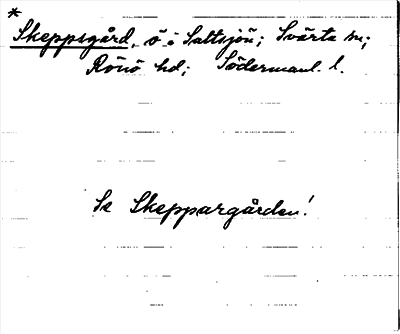 *
Skeppsgård, ö i Saltsjön; Svärta sn;
Rönö hd; Södermanl. l.
Se Skeppargården!